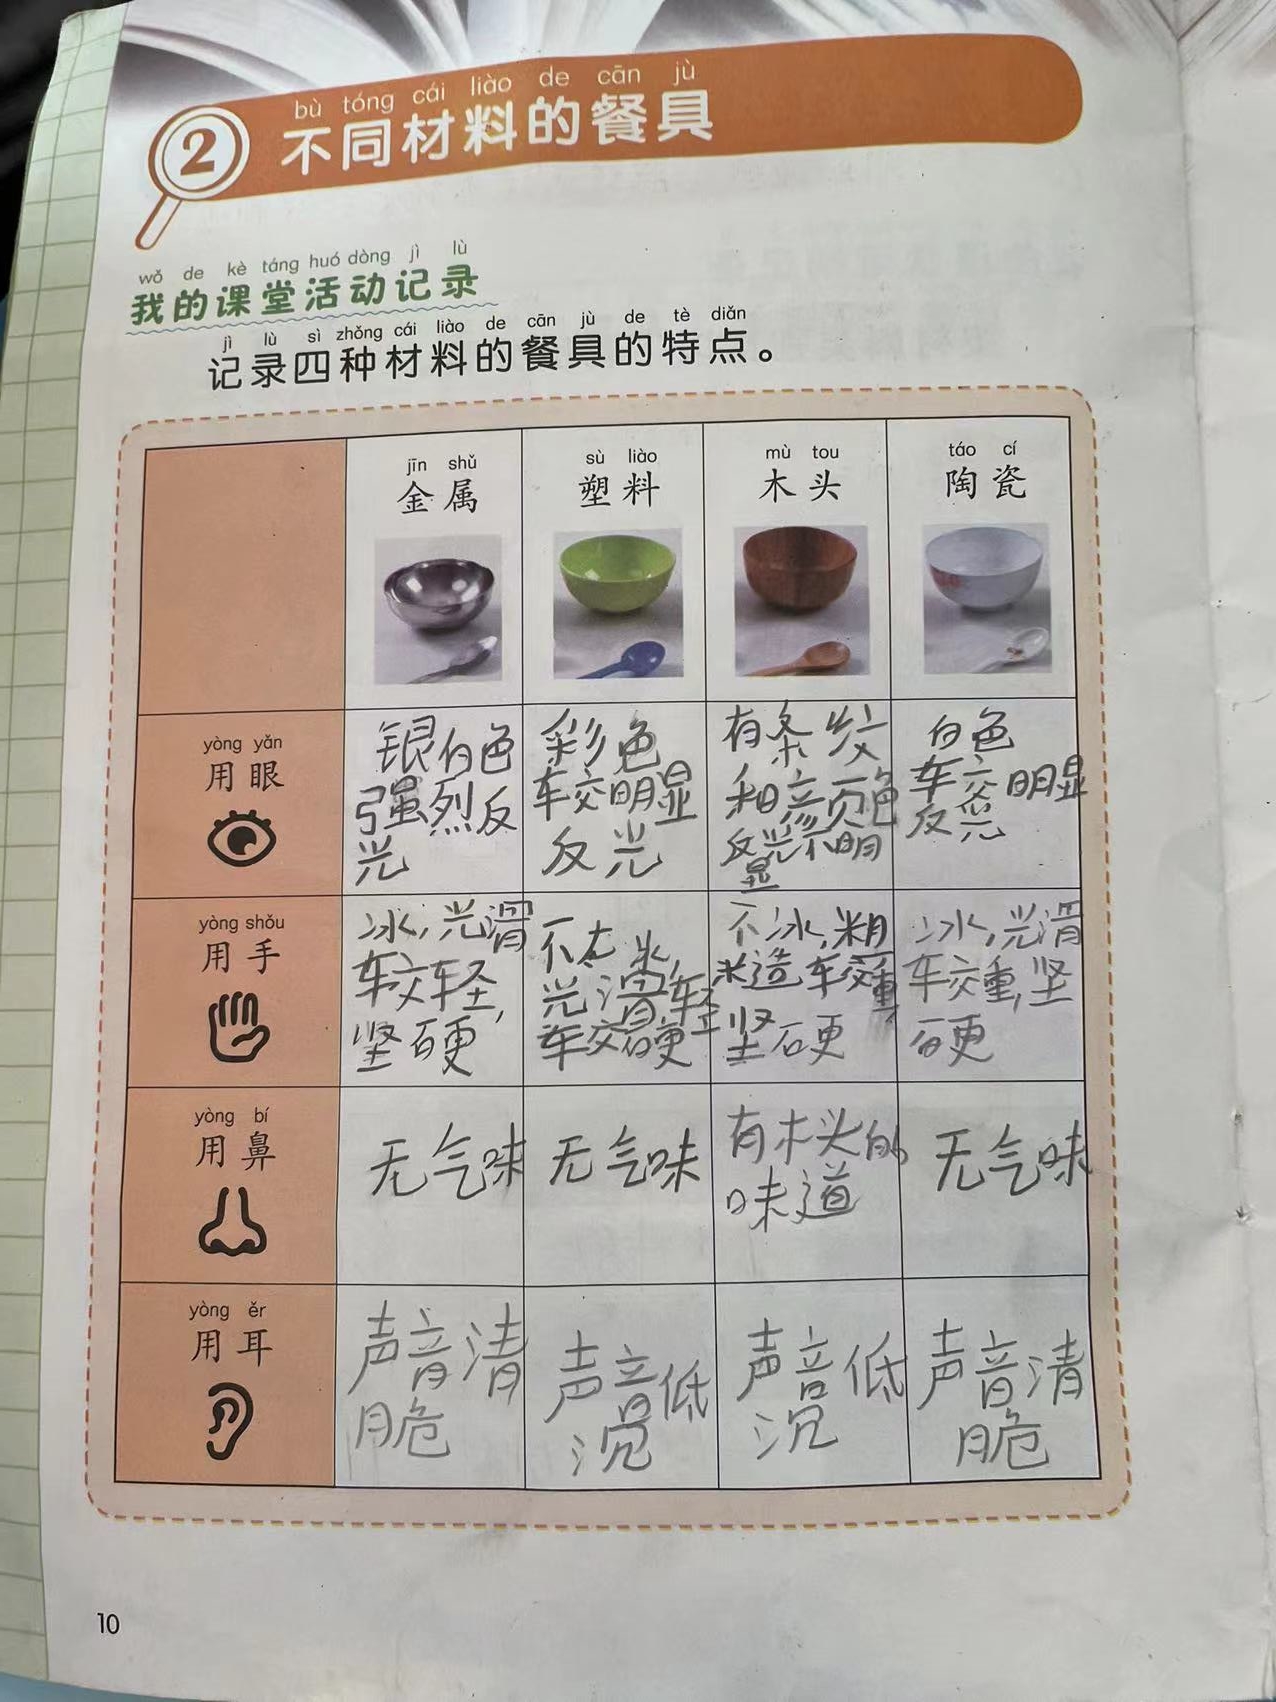 bù tóng cái liào de cān jù
2 不同材料的餐具
wǒ de kè táng huó dòng jì lù
我的课堂活动记录
jì lù sì zhǒng cái liào de cān jù de tè diǎn
记录四种材料的餐具的特点。
jīn shǔ
金属
sù liào
塑料
mù tou
木头
táo cí
陶瓷
yòng yǎn
用眼
银白色
强烈反
光
彩色
较明显
反光
有条纹
和颜色
反光不明
显
白色
较明显
反光
yòng shǒu
用手
冰,光滑
较轻,
坚硬
不太冰,
光滑,轻
较硬
不冰,粗
糙 较重,
坚硬
冰,光滑
较重,坚
硬
yòng bí
用鼻
无气味
无气味
有木头的
味道
无气味
yòng ěr
用耳
声音清
脆
声音低
沉
声音低
沉
声音清
脆
10